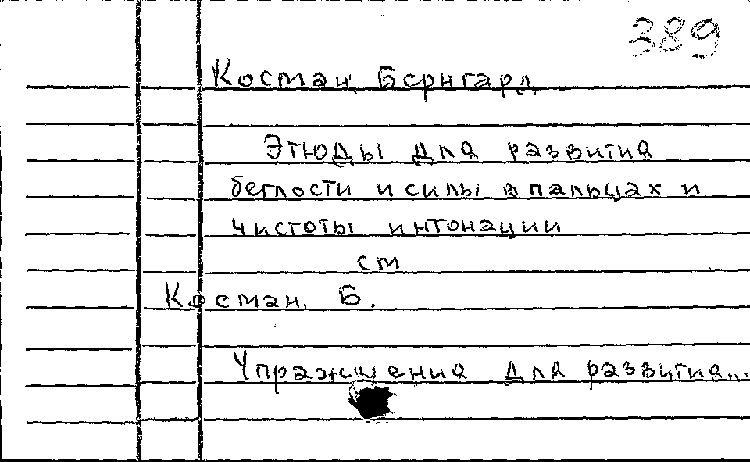 389
Косман Бернгард
Этюды для развития
беглости и силы в пальцах и
чистоты интонации
см
Косман Б.
Упражнения для развития...